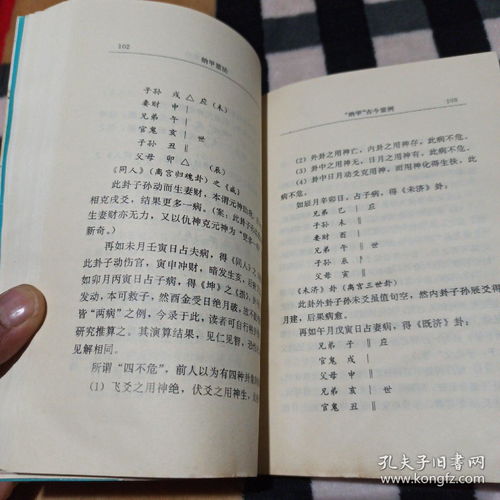 102
纳甲筮法
子孙 戌 △ 应(未)
妻财 申
兄弟 午
官鬼 亥 世
子孙 丑
父母 卯 △ (辰)
《同人》(离宫归魂卦)之
此卦子孙动而生妻财,本谓元神
相克戌爻,结果更多一病。(案:此卦子孙
生妻财亦无力,又以仇神克元神为
新奇。)
再如未月壬寅日占夫病,得《同人》之
此卦子动伤官,寅申冲财,暗发生亥,
如卯月丙寅日占子病,得《坤》之
发动,本可救子,然酉金受日绝月破,
皆“两病”之例,今录于此,读者可自行
研究推算之。其演算结果,见仁见智,
见解相同。
所谓“四不危”,前人以为有四种卦
(1)飞爻之用神绝,伏爻之用神生,
“纳甲”古今筮例
103
(2)外卦之用神亡,内卦之用神存,此病不危。
(3)卦中之用神无,日月之用神有,此病不危。
(4)卦中日月动爻克用神,而用神化得生扶,此
病不危。
如辰月辛卯日,占子病,得《未济》卦:
兄弟 巳 应
子孙 未
妻财 酉
兄弟 午 世
子孙 辰
父母 寅
《未济》卦(离宫三世卦)
此卦外卦子孙未爻虽值旬空,然内卦子孙辰爻得
月建,后果病愈。
再如午月戊寅日占妻病,得《既济》卦:
兄弟 子 应
官鬼 戌
父母 申
兄弟 亥 世
官鬼 丑
孔夫子旧书网
www.kongfz.com